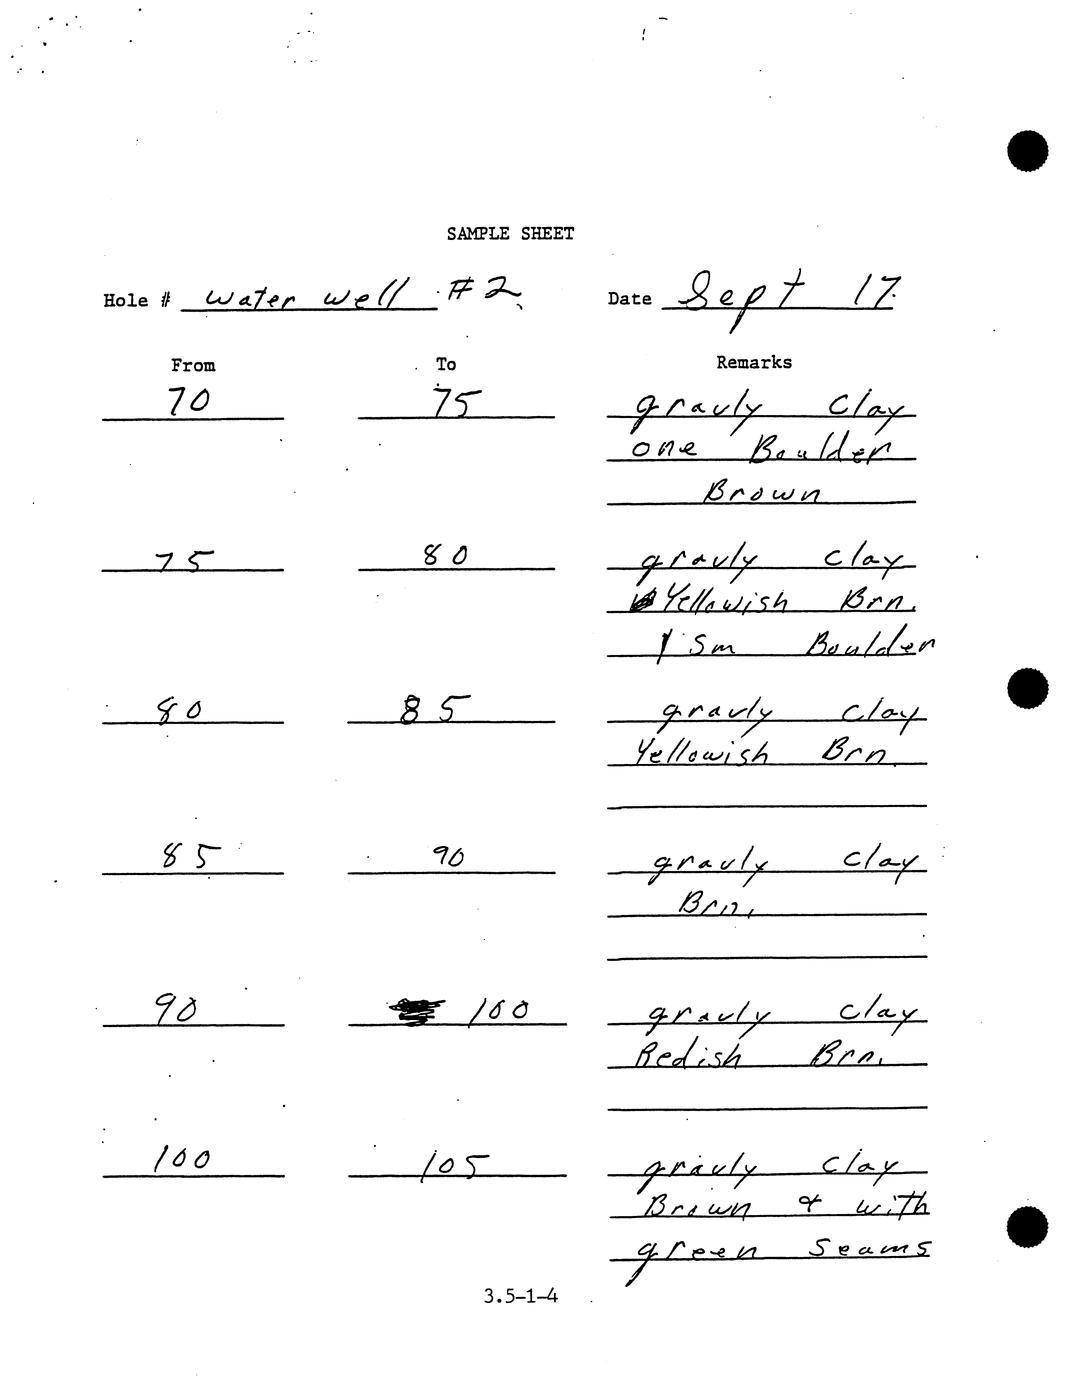 SAMPLE SHEET
Hole # water well #2 Date Sept 17
From To Remarks
70 75 gravly clay
one Boulder
Brown
75 80 gravly clay
Yellowish Brn.
1 Sm Boulder
80 85 gravly clay
Yellowish Brn.
85 90 gravly clay
Brn.
90 100 gravly clay
Redish Brn.
100 105 gravly clay
Brown & with
green seams
3.5-1-4